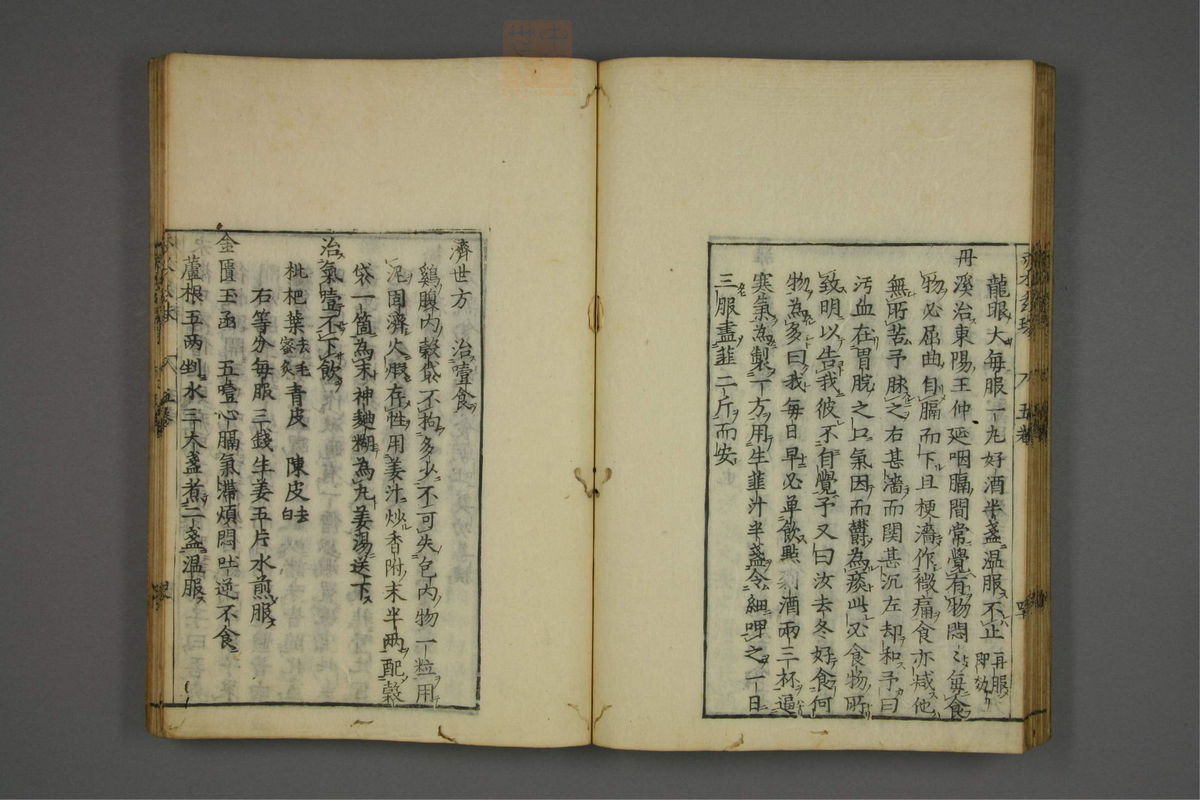 龍眼大每服一丸好酒半盞温服不止再服即効
丹溪治東陽王仲延咽膈間常覺有物悶々每食
物必屈曲自膈而下且梗濇作微痛食亦减他
無所苦予脉之右甚濇而関甚沉左却和予曰
汚血在胃脘之口氣因而欝為痰此必食物所
致明以告我彼不自覺予又曰汝去冬好食何
物為多曰我每日早必单飲點剁酒兩三杯逼
寒氣為製一方用生韮汁半盞令細呷之一日
三服盡韮二斤而安
濟世方　治噎食
鷄腹内糓袋不拘多少不可失包内物一粒用
泥固濟火煅存性用姜汁炒香附末半两配糓
袋一箇為末神麯糊為丸姜湯送下
治氣噎不下飲
枇杷葉去毛蜜炙青皮　陳皮去白
右等分每服三錢生姜五片水煎服
金匱玉函　五噎心膈氣滞煩悶吐逆不食
蘆根五两剉水三大盞煮二盞温服
五卷